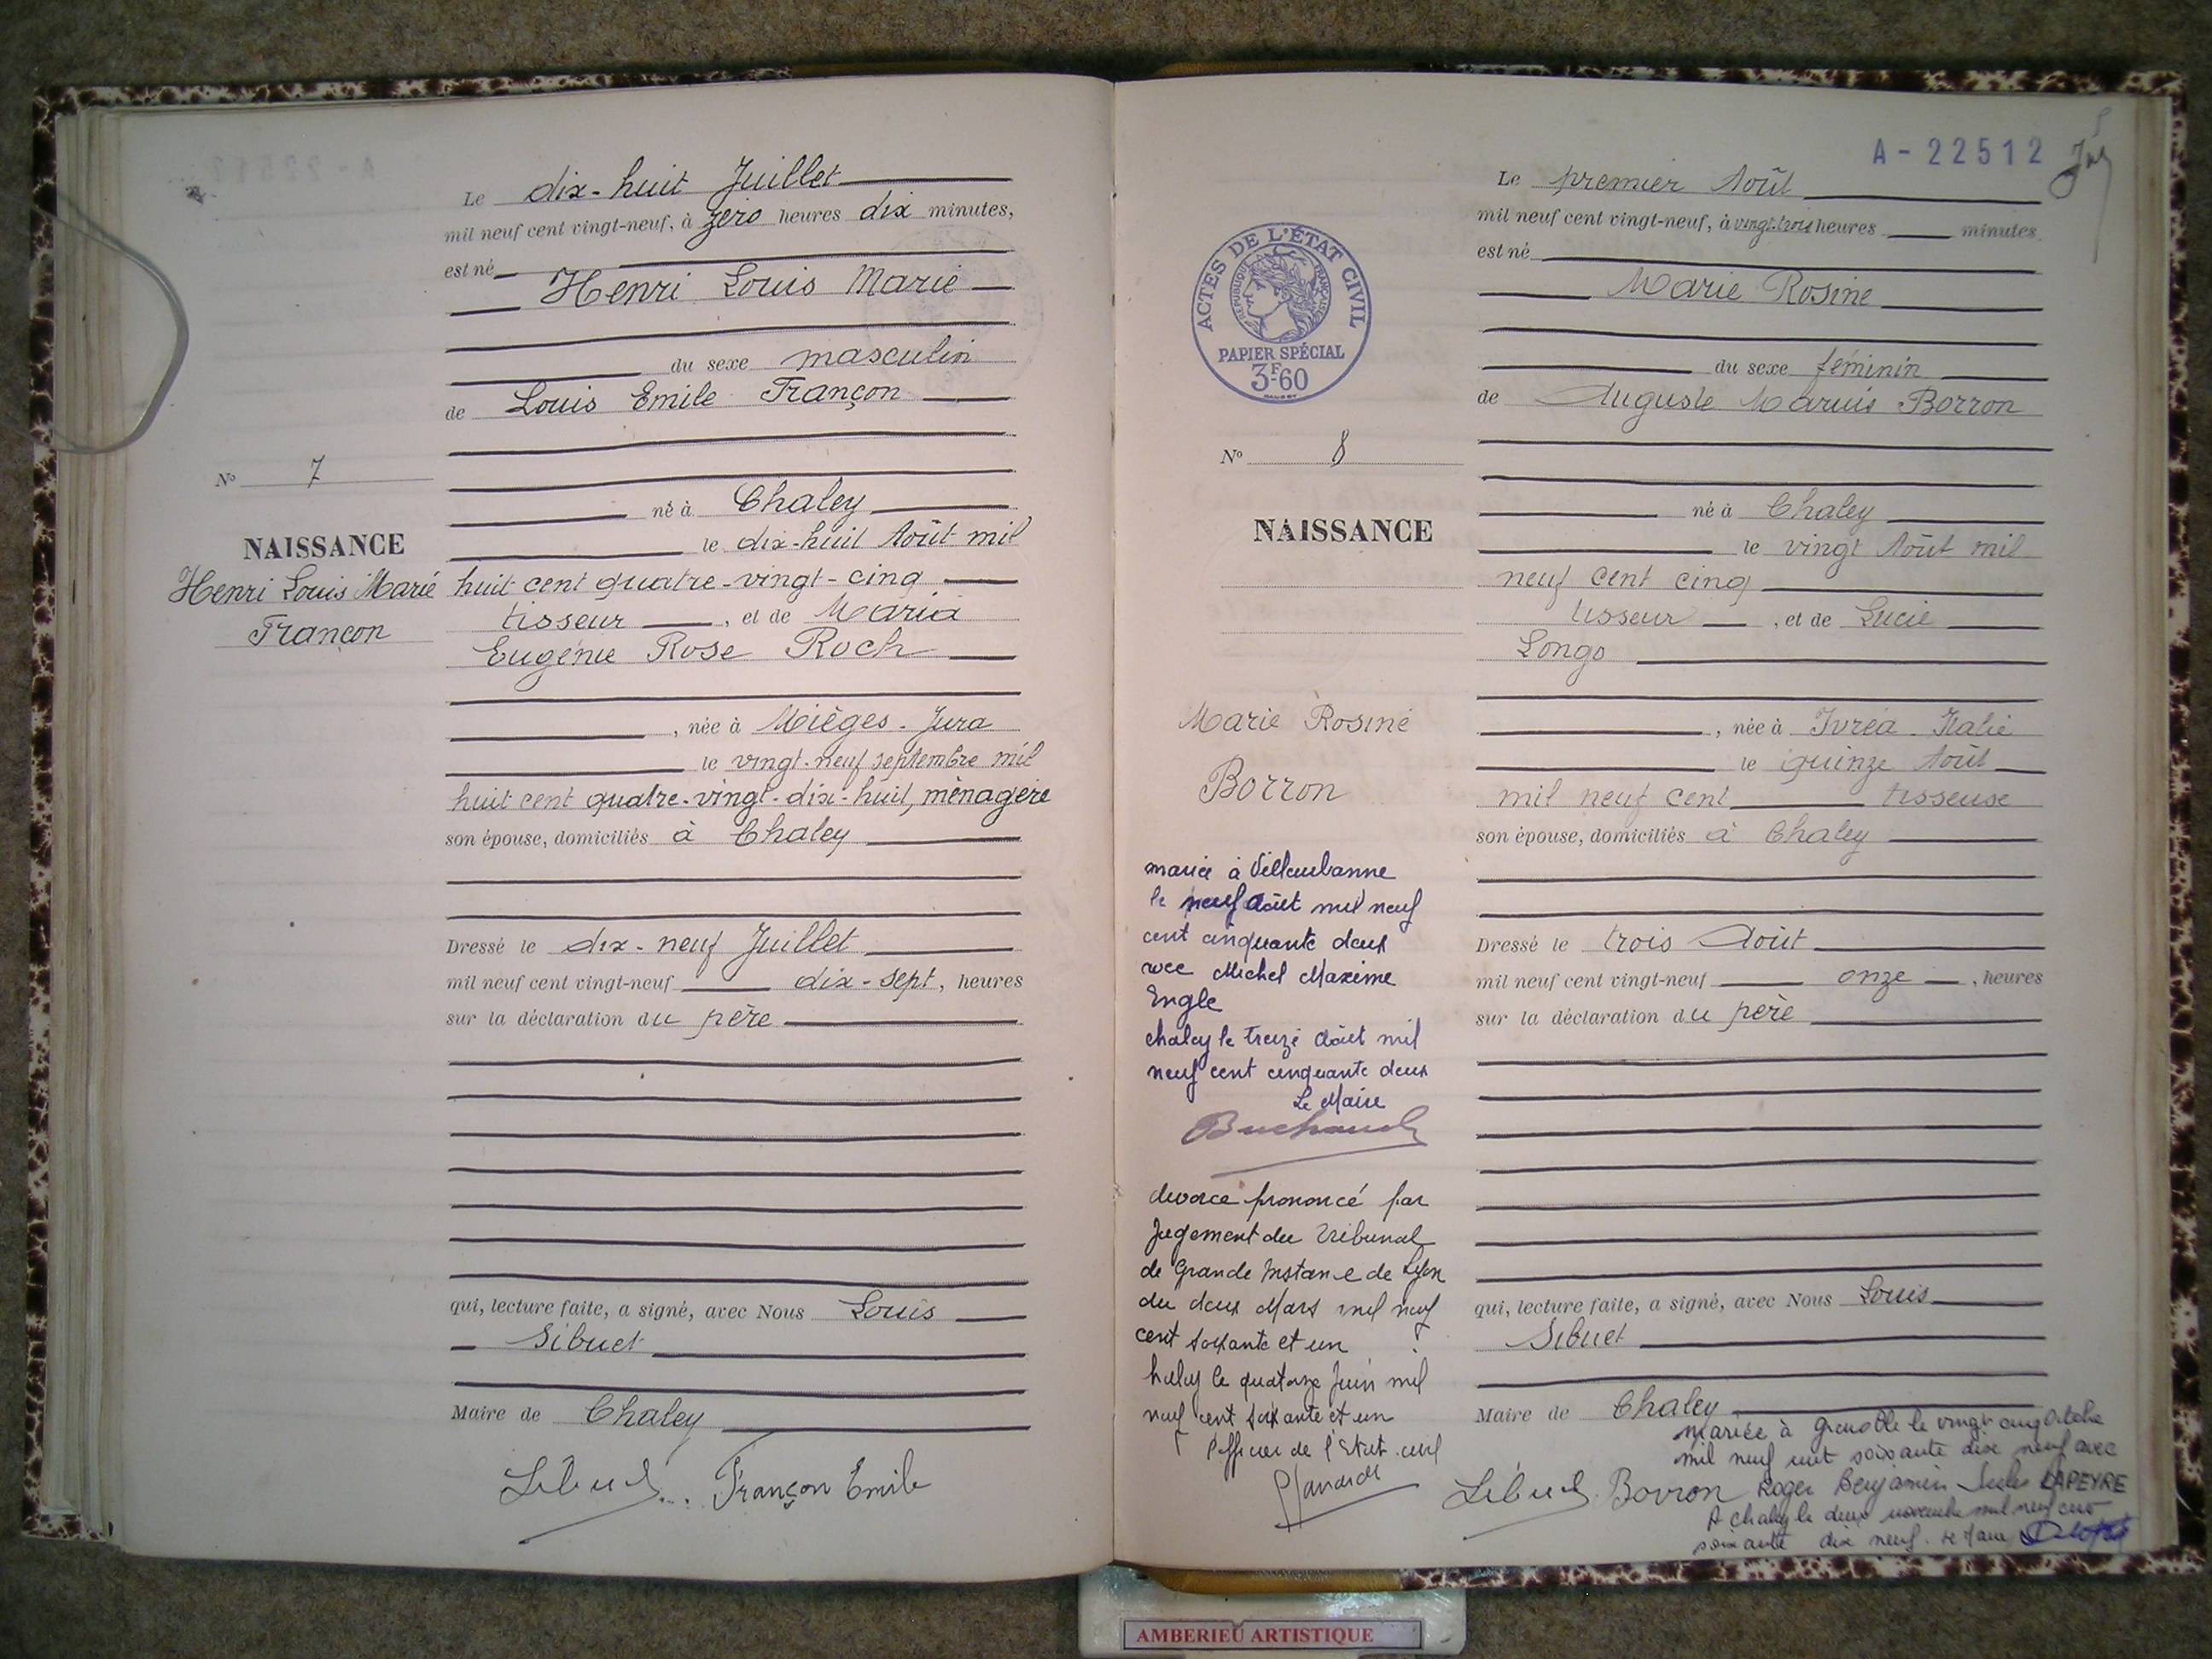 Le dix-huit Juillet
mil neuf cent vingt-neuf, à zéro heures dix minutes,
est né
Henri Louis Marie
du sexe masculin
de Louis Emile Françon
né à Chaley
le dix-huit Août mil
huit cent quatre-vingt-cinq
tisseur, et de Maria
Eugénie Rose Roch
, née à Mièges - Jura
le vingt-neuf septembre mil
huit cent quatre-vingt-dix-huit, ménagère
son épouse, domiciliés à Chaley
Dressé le dix-neuf Juillet
mil neuf cent vingt-neuf dix-sept, heures
sur la déclaration du père
qui, lecture faite, a signé, avec Nous Louis
Sibuet
Maire de Chaley
Françon Emile
N° 7
NAISSANCE
Henri Louis Marie
Françon
A-22512
Le premier Août
mil neuf cent vingt-neuf, à vingt-trois heures minutes
est né
Marie Rosine
du sexe féminin
de Auguste Marius Borron
né à Chaley
le vingt Août mil
neuf cent cinq
tisseur, et de Lucie
Longo
, née à Ivréa - Italie
le quinze Août
mil neuf cent tisseuse
son épouse, domiciliés à Chaley
Dressé le trois Août
mil neuf cent vingt-neuf onze, heures
sur la déclaration du père
qui, lecture faite, a signé, avec Nous Louis
Sibuet
Maire de Chaley
Borron
ACTES DE L'ÉTAT CIVIL
RÉPUBLIQUE FRANÇAISE
PAPIER SPÉCIAL
3F60
N° 8
NAISSANCE
Marie Rosine
Borron
mariée à Villeurbanne
le neuf Août mil neuf
cent cinquante deux
avec Michel Maxime
Engle
chaley le treize Août mil
neuf cent cinquante deux
Le Maire
divorce prononcé par
Jugement du Tribunal
de Grande Instance de Lyon
du deux Mars mil neuf
cent soixante et un
haley le quatorze Juin mil
neuf cent soixante et un
l'officier de l'Etat civil
mariée à Grenoble le vingt cinq Octobre
mil neuf cent soixante dix neuf avec
Roger Benjamin Jules LAPEYRE
A chaley le deux novembre mil neuf cent
soixante dix neuf. Le Maire
AMBERIEU ARTISTIQUE